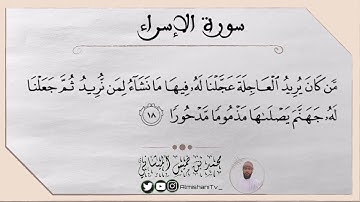 سورة الإسراء
مَّن كَانَ يُرِيدُ ٱلۡعَاجِلَةَ عَجَّلۡنَا لَهُۥ فِيهَا مَا نَشَآءُ لِمَن نُّرِيدُ ثُمَّ جَعَلۡنَا
لَهُۥ جَهَنَّمَ يَصۡلَىٰهَا مَذۡمُومٗا مَّدۡحُورٗا ١٨
محمد بن خميس المشاني
AlmishaniTv_